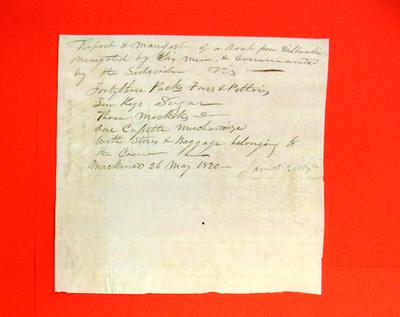 Report & Manifest of a Boat from Millwakie
navigated by Six men, & Commanded
by the Subscriber Viz
Forty three Packs Furs & Peltries
Ten Kegs Sugar
Three Mockoks do
One Cassette Merchandize
With Stores & Baggage belonging to
the Crew
Mackinac 26 May 1820 James